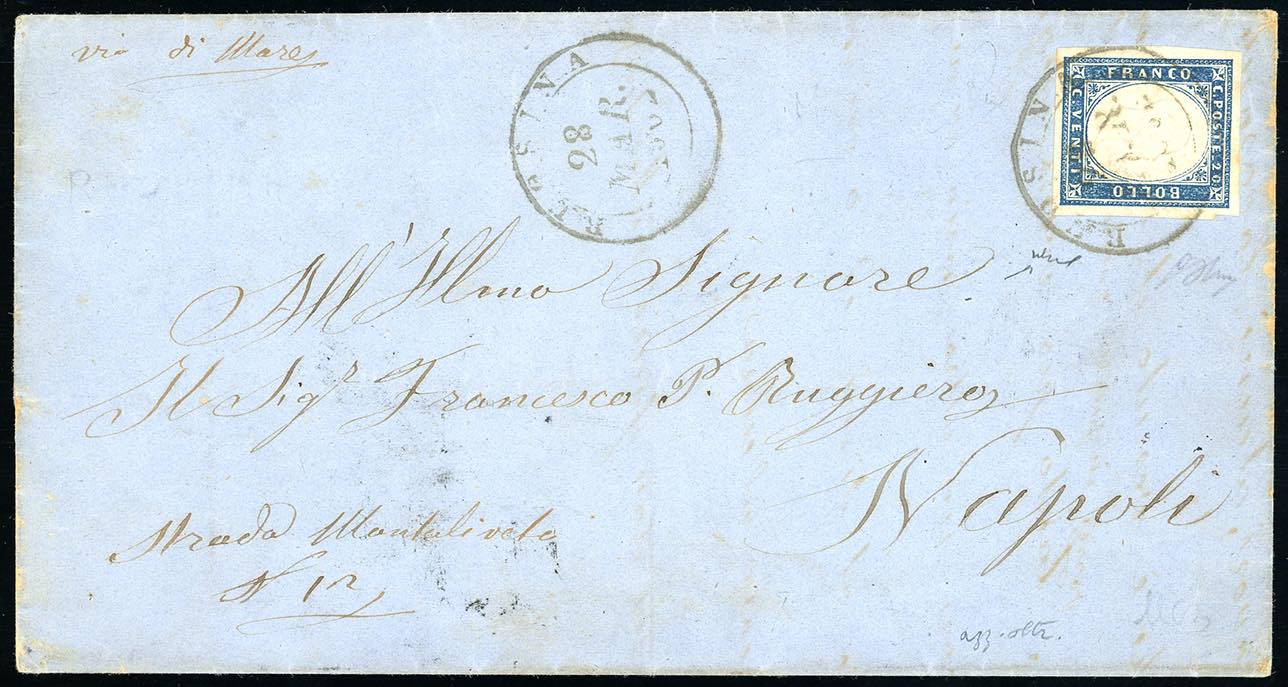 via di Mare
RUOSINA
28
MAR.
FRANCO
C. POSTE 20
BOLLO
C. VENTI
All' Illmo Signore
Il Sigr Francesco P. Ruggiero
Napoli
Strada Montaliveto
N 12
azz. oltr.